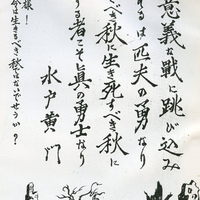 意義な戦に跳び込み
するは匹夫の勇なり
べき秋に生き死すべき秋に
る者こそ真の勇士なり
水戸黄門
様！
今は生きるべき秋ではないでせうか？